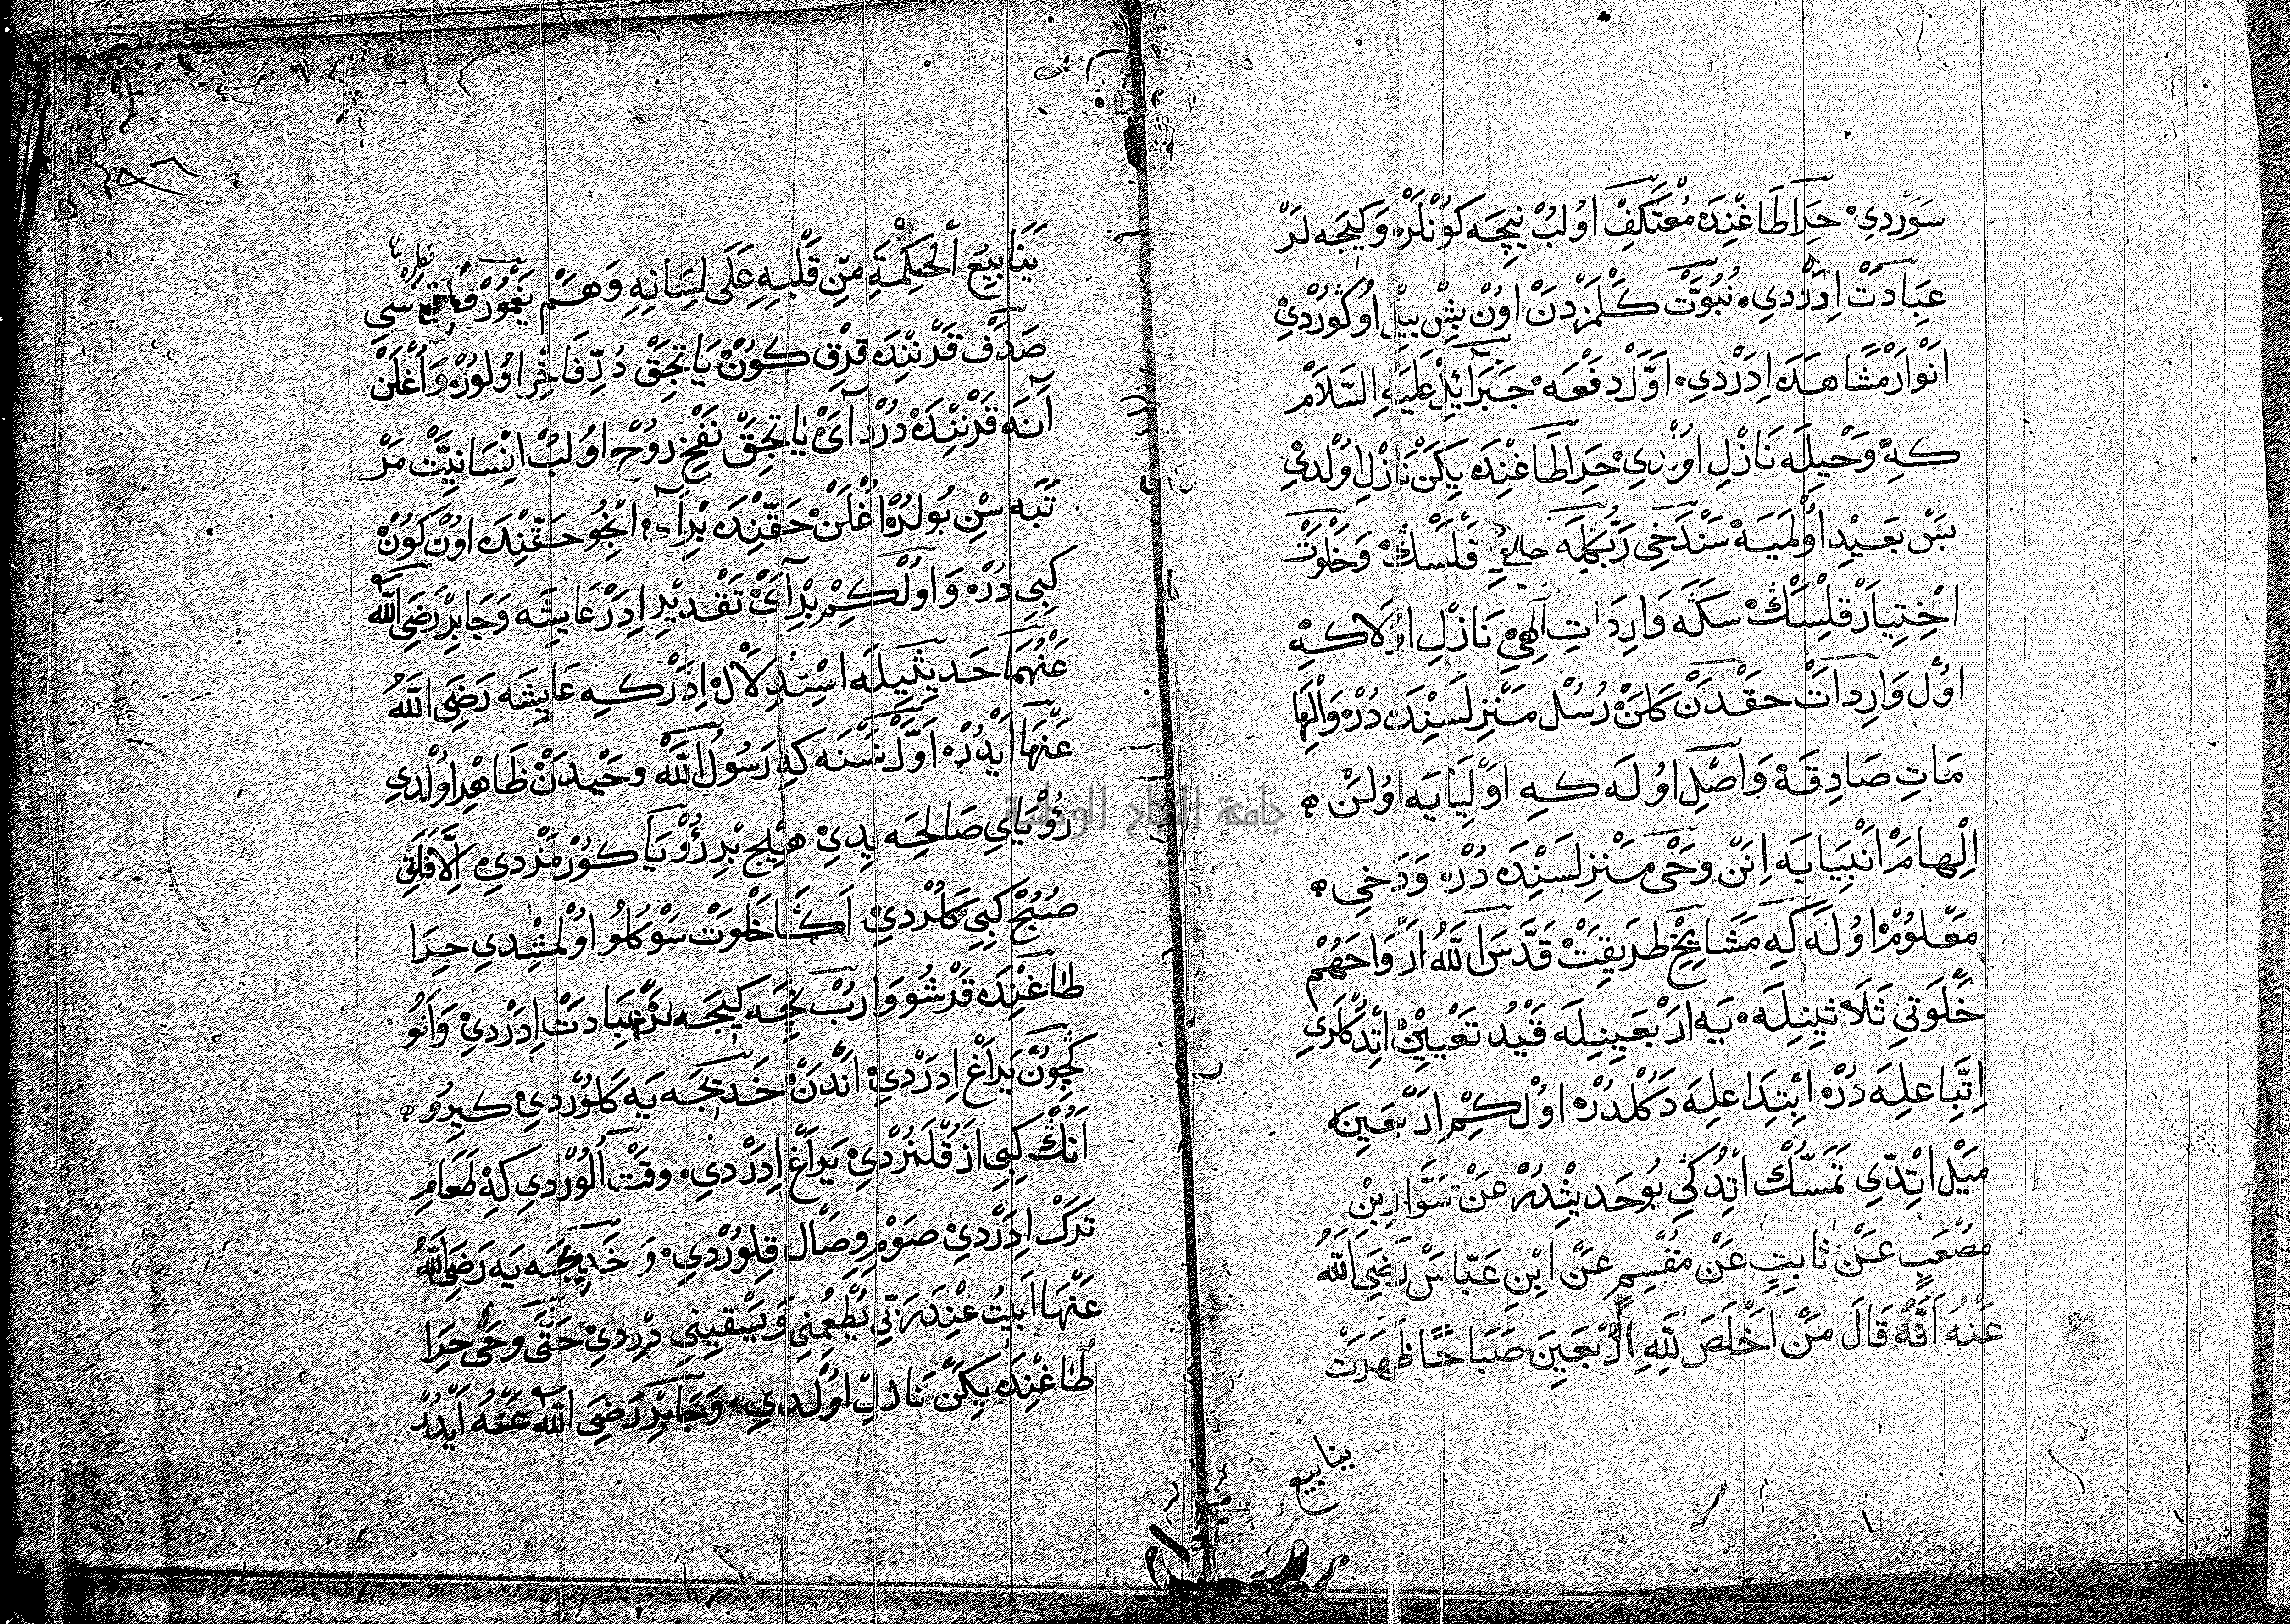 سَوَرْدِي حِرَا طَاغِنْدَه مُعْتَكِفْ اُولُبْ نِيچَه كُونْلَرْ وَكِيجَه لَرْ
عِبَادَتْ اِدَرْدِي نُبُوَّتْ كَلْمَزْدَنْ اُونْ بِشْ يِيلْ اُوكُورْدِنْ
اَنْوَارْ مُشَاهَدَه اِدَرْدِي اَوَّلْ دَفْعَه جَبَرَائِلْ عَلَيْهِ السَّلَامْ
كِه وَحْيِلَه نَازِلْ اُولْدِي حِرَا طَاغِنْدَه يِكَنْ نَازِلْ اُولْدِي
بَسْ بَعِيدْ اُولْمَيَه سَنْدَخِي رَبُّكْلَه قِلَسَكْ وَخَلْوَتْ
اِخْتِيَارْ قِلْسَكْ سَكَه وَارِدَاتِ اِلٰهِي نَازِلْ اُولَا كِه
اُولْ وَارِدَاتْ حَقْدَنْ كَلَنْ رُسُلْ مَنْزِلَسِنْدَه دُرْ وَاِلْهَا
مَاتِ صَادِقَه وَاصِلْ اُولَه كِه اَوْلِيَايَه اُولَنْ
اِلْهَامْ اَنْبِيَايَه اِنَنْ وَحْي مَنْزِلَسِنْدَه دُرْ وَدَخِي
مَعْلُومْ اُولَه كِه مَشَايِخْ طَرِيقَتْ قَدَّسَ اللّٰهُ اَرْوَاحَهُمْ
خَلْوَتِي ثَلَاثِينِلَه يَه اَرْبَعِينِلَه قَيْدُ تَعْيِينْ اِتْدُكْلَرِي
اِتِّبَاعِلَه دُرْ اِبْتِدَاعِلَه دَكُلْدُرْ اُولْ كِمْ اَرْبَعِينَه
مَيْل اِتْدِي تَمَسُّكْ اِتْدُكِي بُو حَدِيثْدُرْ عَنْ سَوَّارِ بْنِ
مُصْعَبٍ عَنْ ثَابِتٍ عَنْ مِقْسَمٍ عَنْ ابْنِ عَبَّاسْ رَضِيَ اللّٰهُ
عَنْهُ اَنَّهُ قَالَ مَنْ اَخْلَصَ لِلّٰهِ اَرْبَعِينَ صَبَاحًا ظَهَرَتْ
ينابيع
يَنَابِيعُ الْحِكْمَةِ مِنْ قَلْبِهِ عَلَى لِسَانِهِ وَهَمْ يَغْمُورْ سِي
صَدَفْ قَرْنِنْدَه قِرْقْ كُونْ يَاتِجَقْ دُرِّ فَاخِرْ اُولُورْ وَاُغْلَنْ
اَنَه قَرْنِنْدَه دُرْدْ آيْ يَاتِجَقْ نَفْخِ رُوحْ اُولُبْ اِنْسَانِيَّتْ مَرْ
تَبَه سِنْ بُولُرْ اُغْلَنْ حَقِّنْدَه بِرْ اَيْ اِنْجُو حَقِّنْدَه اُونْ كُونْ
كِبِي دُرْ وَاُولْ كِمْ بِرْ آيْ تَقْدِيرْ اِدَرْ عَايِشَه وَجَابِرْ رَضِيَ اللّٰهُ
عَنْهُمَا حَدِيثِيلَه اِسْتِدْلَالْ اِدَرْ كِه عَايِشَه رَضِيَ اللّٰهُ
عَنْهَا اَيْدُرْ اَوَّلْ نَسْنَه كِه رَسُولُ اللّٰه وَحْيدَنْ ظَاهِرْ اُولْدِي
رُؤْيَايِ صَالِحَه يِدِي هِيچْ بِرْ رُؤْيَا كُورْمَزْدِي اِلَّا فَلَقِ
صُبْحْ كِبِي كَلُرْدِي اَكَا خَلْوَتْ سَوْكُلُو اُولْمِشْدِي حِرَا
طَاغِنْدَه قَرْشُو وَارُبْ نِچَه كِيجَه لَرْ عِبَادَتْ اِدَرْدِي وَاَنُو
كِچُونْ يَرَاغْ اِدَرْدِي اَنْدَنْ خَدِيجَه يَه كَلُورْدِي كِيرُو
اَنُكْ كِبِي اَزُقْلَنُرْدِي يَرَاغْ اِدَرْدِي وَقْتْ اُلُورْدِي كِه طَعَامِ
تَرْكْ اِدَرْدِي صَوْمِ وِصَالْ قِلُورْدِي وَ خَدِيجَه يَه رَضِيَ اللّٰهُ
عَنْهَا اَبِيتُ عِنْدَ رَبِّي يُطْعِمُنِي وَيَسْقِينِي دِرْدِي حَتَّى وَحْي حِرَا
طَاغِنْدَه يِكَنْ نَازِلْ اُولْدِي وَجَابِرْ رَضِيَ اللّٰهُ عَنْهُ اَيْدُرْ